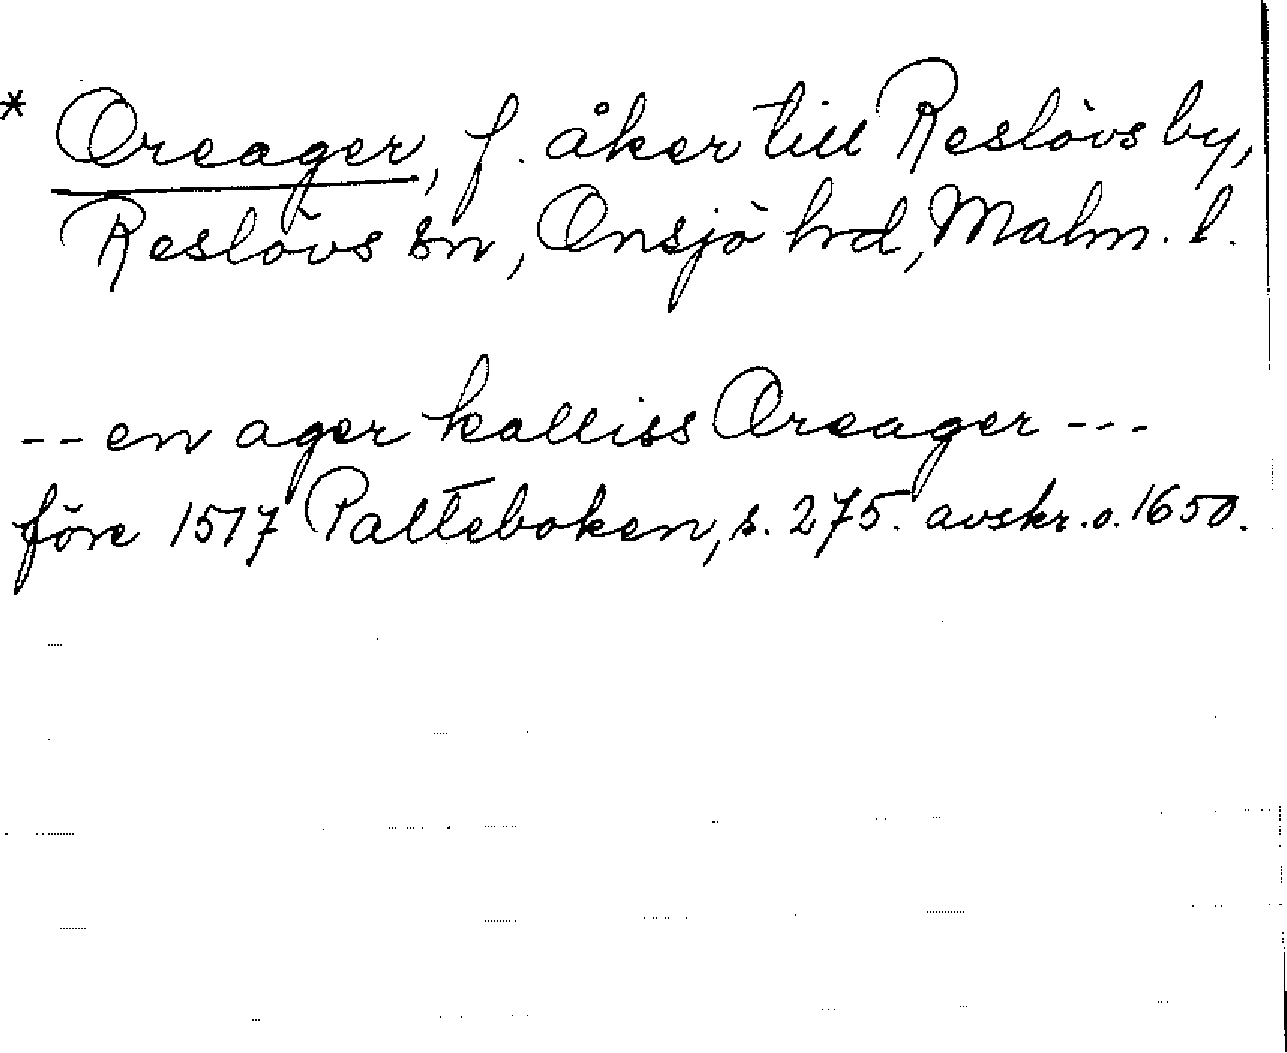 * Oreager, f. åker till Reslövs by,
Reslövs sn, Onsjö hrd, Malm. l.
-- en ager kalliss Oreager ---
före 1517 Palteboken, s. 275. avskr. o. 1650.